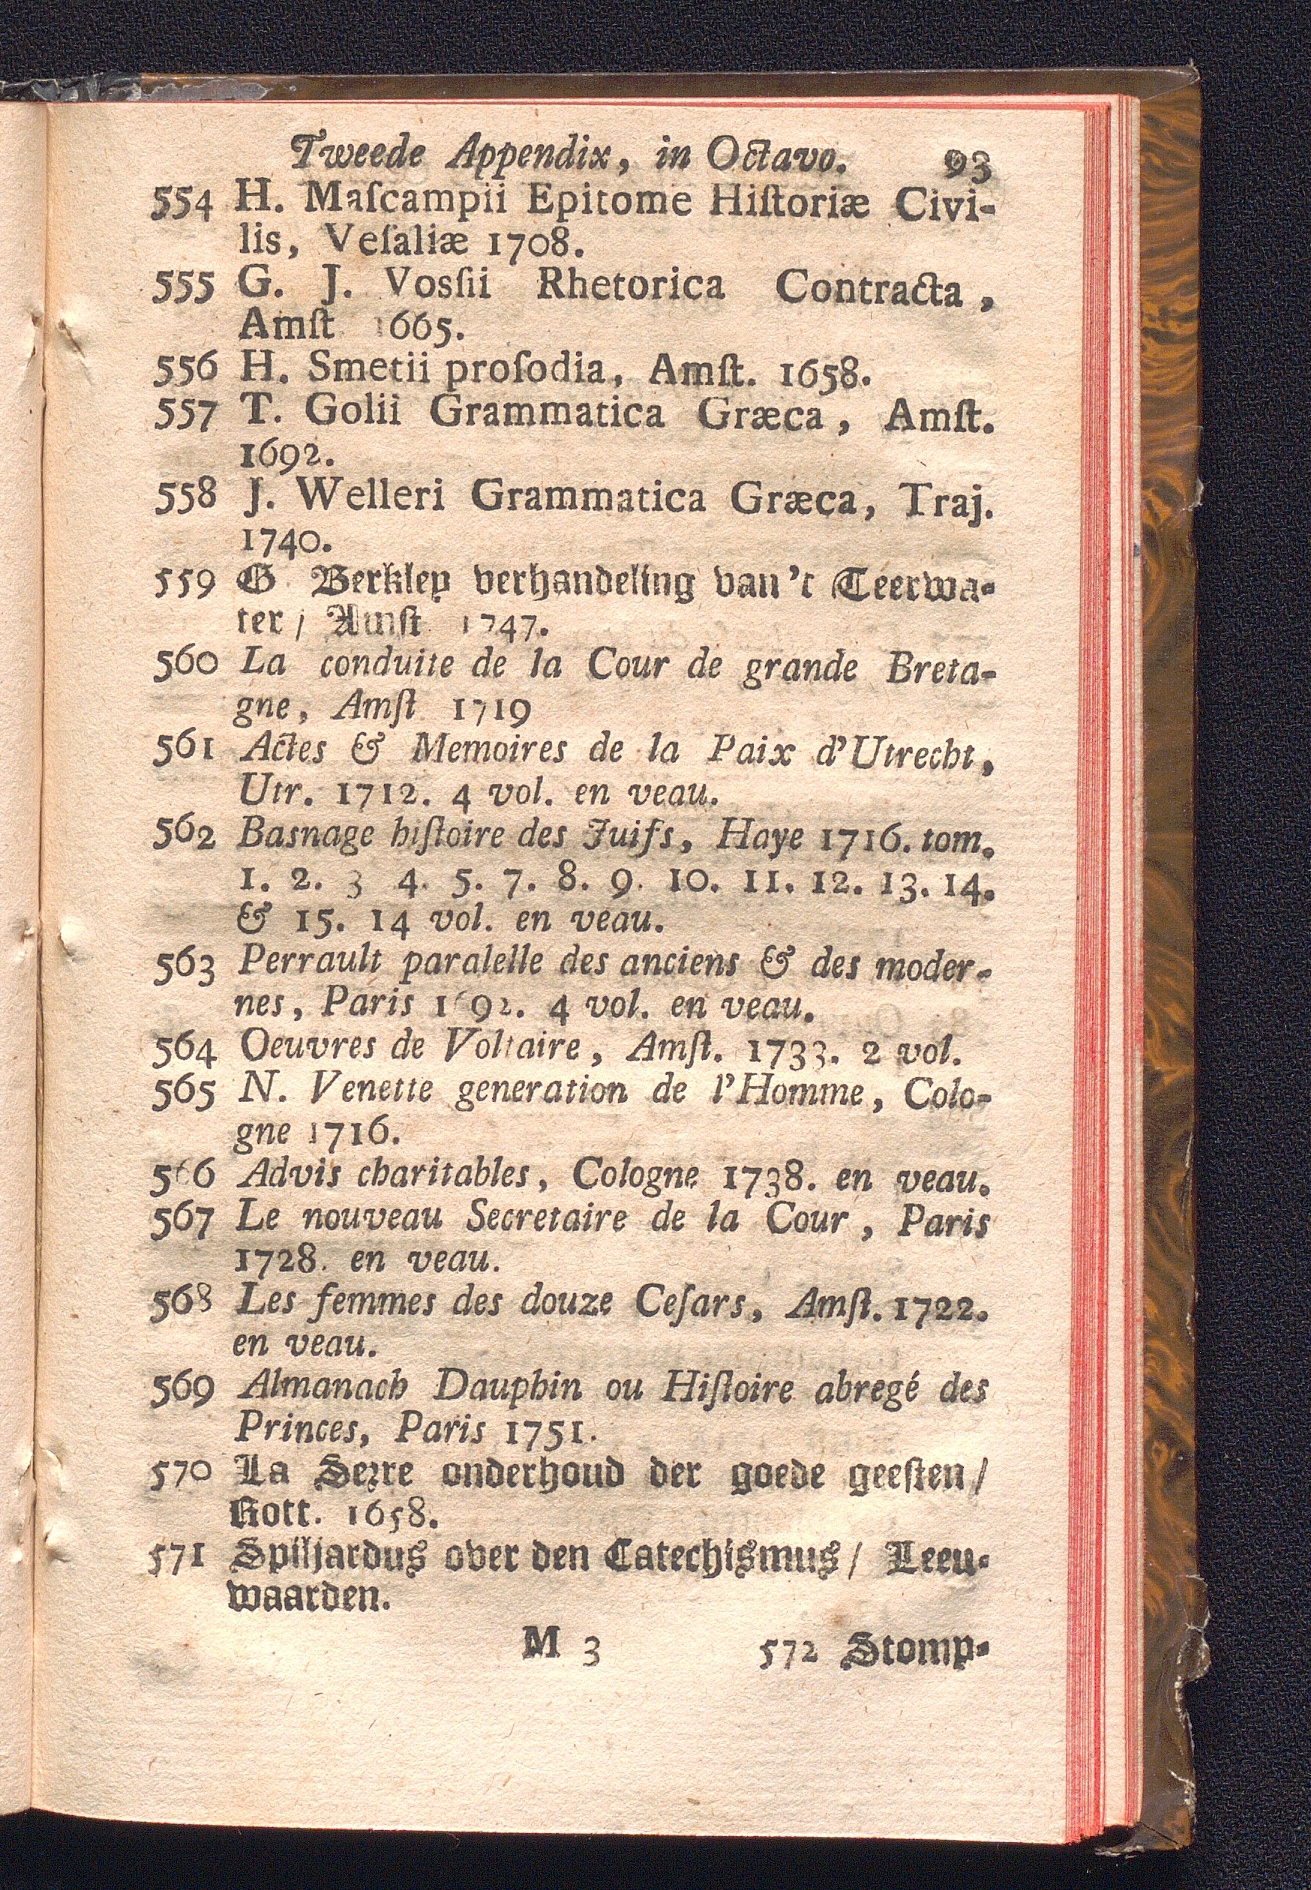 Tweede Appendix, in Octavo. 93
554 H. Maſcampii Epitome Hiſtoriæ Civi-
lis, Veſaliæ 1708.
555 G. J. Vosſii Rhetorica Contracta,
Amſt 1665.
556 H. Smetii proſodia, Amſt. 1658.
557 T. Golii Grammatica Græca, Amſt.
1692.
558 J. Welleri Grammatica Græca, Traj.
1740.
559 G Berkley verhandeling van 't Teerwa-
ter / Amſt 1747.
560 La conduite de la Cour de grande Breta-
gne, Amſt 1719
561 Actes & Memoires de la Paix d'Utrecht,
Utr. 1712. 4 vol. en veau.
562 Basnage hiſtoire des Juifs, Haye 1716. tom.
1. 2. 3 4. 5. 7. 8. 9. 10. 11. 12. 13. 14.
& 15. 14 vol. en veau.
563 Perrault paralelle des anciens & des moder-
nes, Paris 1692. 4 vol. en veau.
564 Oeuvres de Voltaire, Amſt. 1733. 2 vol.
565 N. Venette generation de l'Homme, Colo-
gne 1716.
566 Advis charitables, Cologne 1738. en veau.
567 Le nouveau Secretaire de la Cour, Paris
1728. en veau.
568 Les femmes des douze Ceſars, Amſt. 1722.
en veau.
569 Almanach Dauphin ou Hiſtoire abregé des
Princes, Paris 1751.
570 La Sezre onderhoud der goede geeſten /
Rott. 1658.
571 Spiljardus over den Catechismus / Leeu-
waarden.
M 3 572 Stomp-